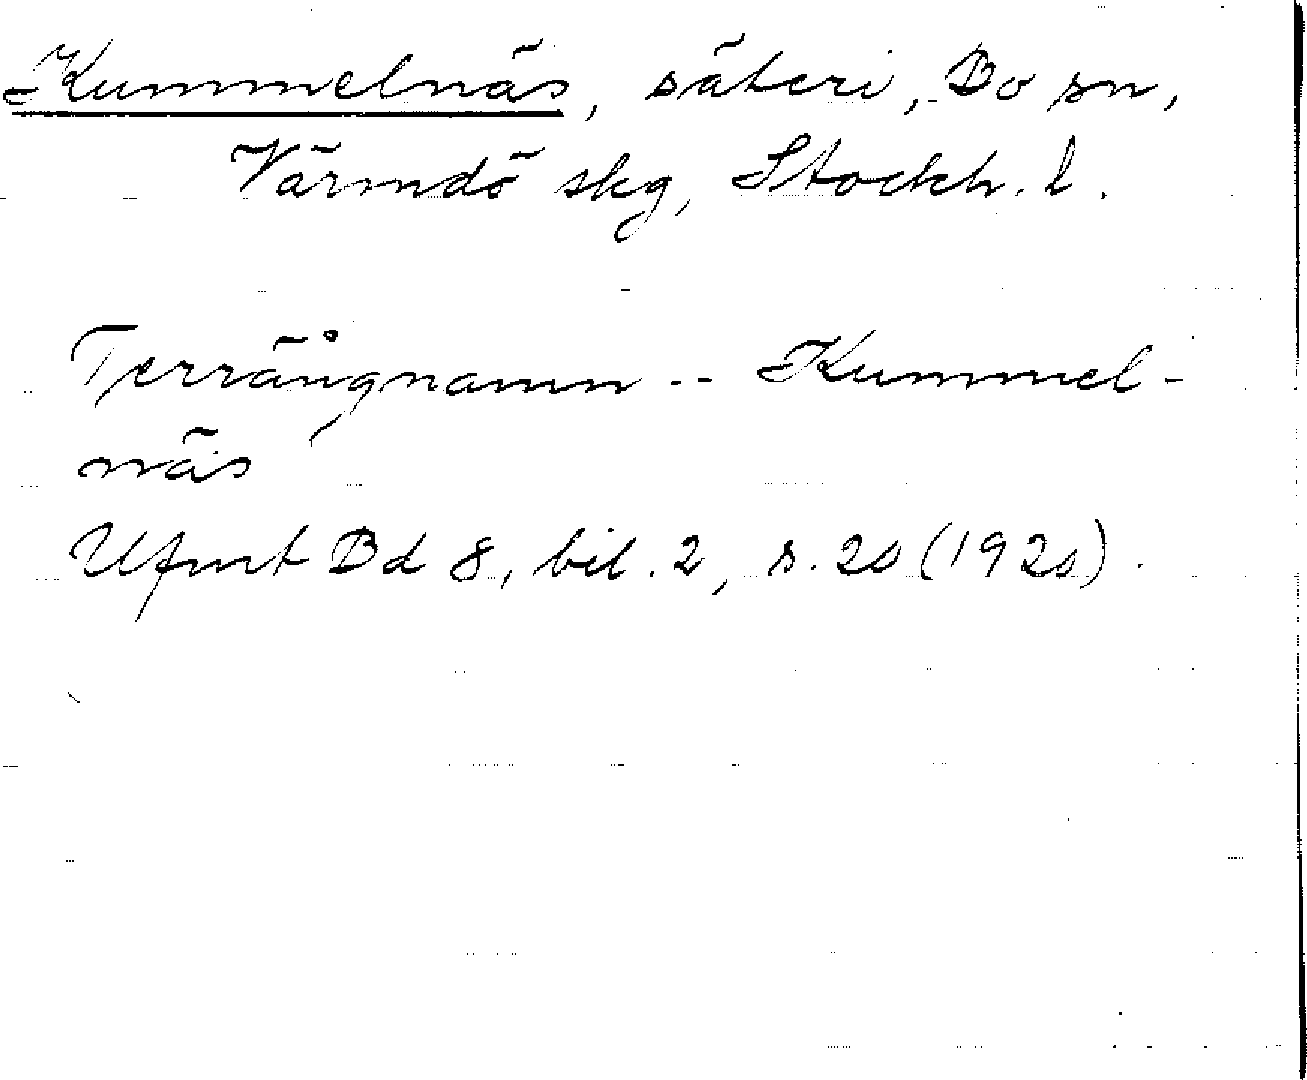 Kummelnäs, säteri, Bo sn,
Värmdö skg, Stockh. l.
Terrängnamn -- Kummel-
näs
Ufmt Bd 8, bil. 2, s. 20 (1920).